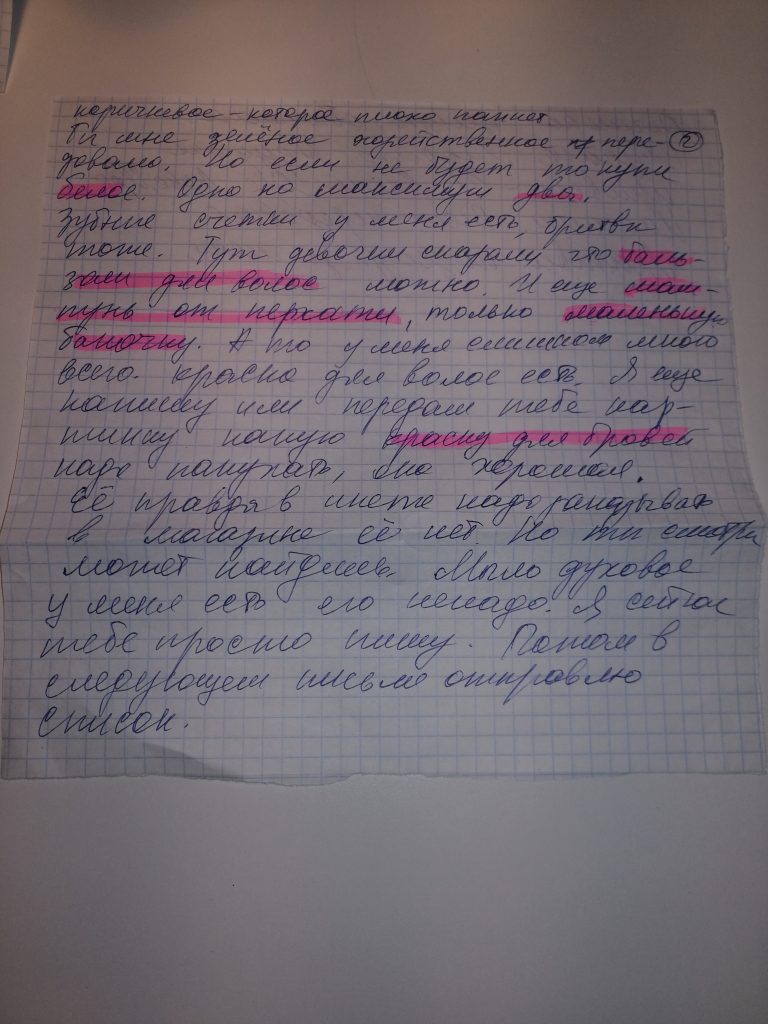 коричневое - которое плохо пахнет.
Ты мне зелёное хозяйственное пере- ②
довала. Но если не будет то купи
белое. Одно но максимум два.
Зубные счетки у меня есть, бритвы
тоже. Тут девочки сказали что баль-
зам для волос можно. И еще шам-
пунь от перхоти, только маленькую
баночку. А то у меня слишком много
всего. краска для волос есть. Я еще
напишу или передам тебе кар-
тинку какую краску для бровей
надо покупать, она хорошая.
Её правда в инете надо заказывать
в магазине её нет. Но ты смотри
может найдешь. Мыло духовое
у меня есть его ненадо. Я сейчас
тебе просто пишу. Потом в
следующем письме отправлю
список.